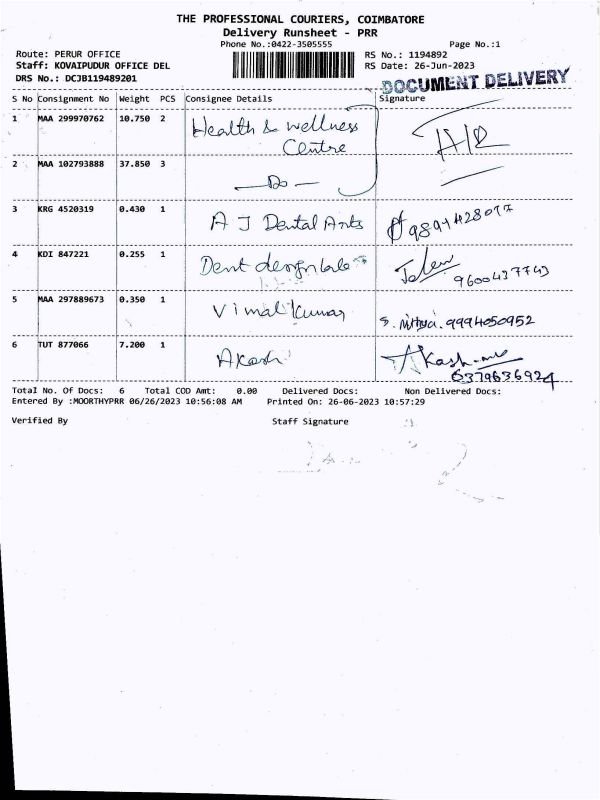 THE PROFESSIONAL COURIERS, COIMBATORE
Delivery Runsheet - PRR
Phone No.:0422-3505555 Page No.:1
Route: PERUR OFFICE RS No.: 1194892
Staff: KOVAIPUDUR OFFICE DEL RS Date: 26-Jun-2023
DRS No.: DCJB119489201 DOCUMENT DELIVERY
S No Consignment No Weight PCS Consignee Details Signature
1 MAA 299970762 10.750 2 Health & wellness
Centre
2 MAA 102793888 37.850 3 — Do —
3 KRG 4520319 0.430 1 A J Dental Arts
4 KDI 847221 0.255 1 Dent 9600437743
5 MAA 297889673 0.350 1 Vimal Kumar S. Nithya. 9994050952
6 TUT 877066 7.200 1 Akash Akash
6379636924
Total No. Of Docs: 6 Total COD Amt: 0.00 Delivered Docs: Non Delivered Docs:
Entered By :MOORTHYPRR 06/26/2023 10:56:08 AM Printed On: 26-06-2023 10:57:29
Verified By Staff Signature